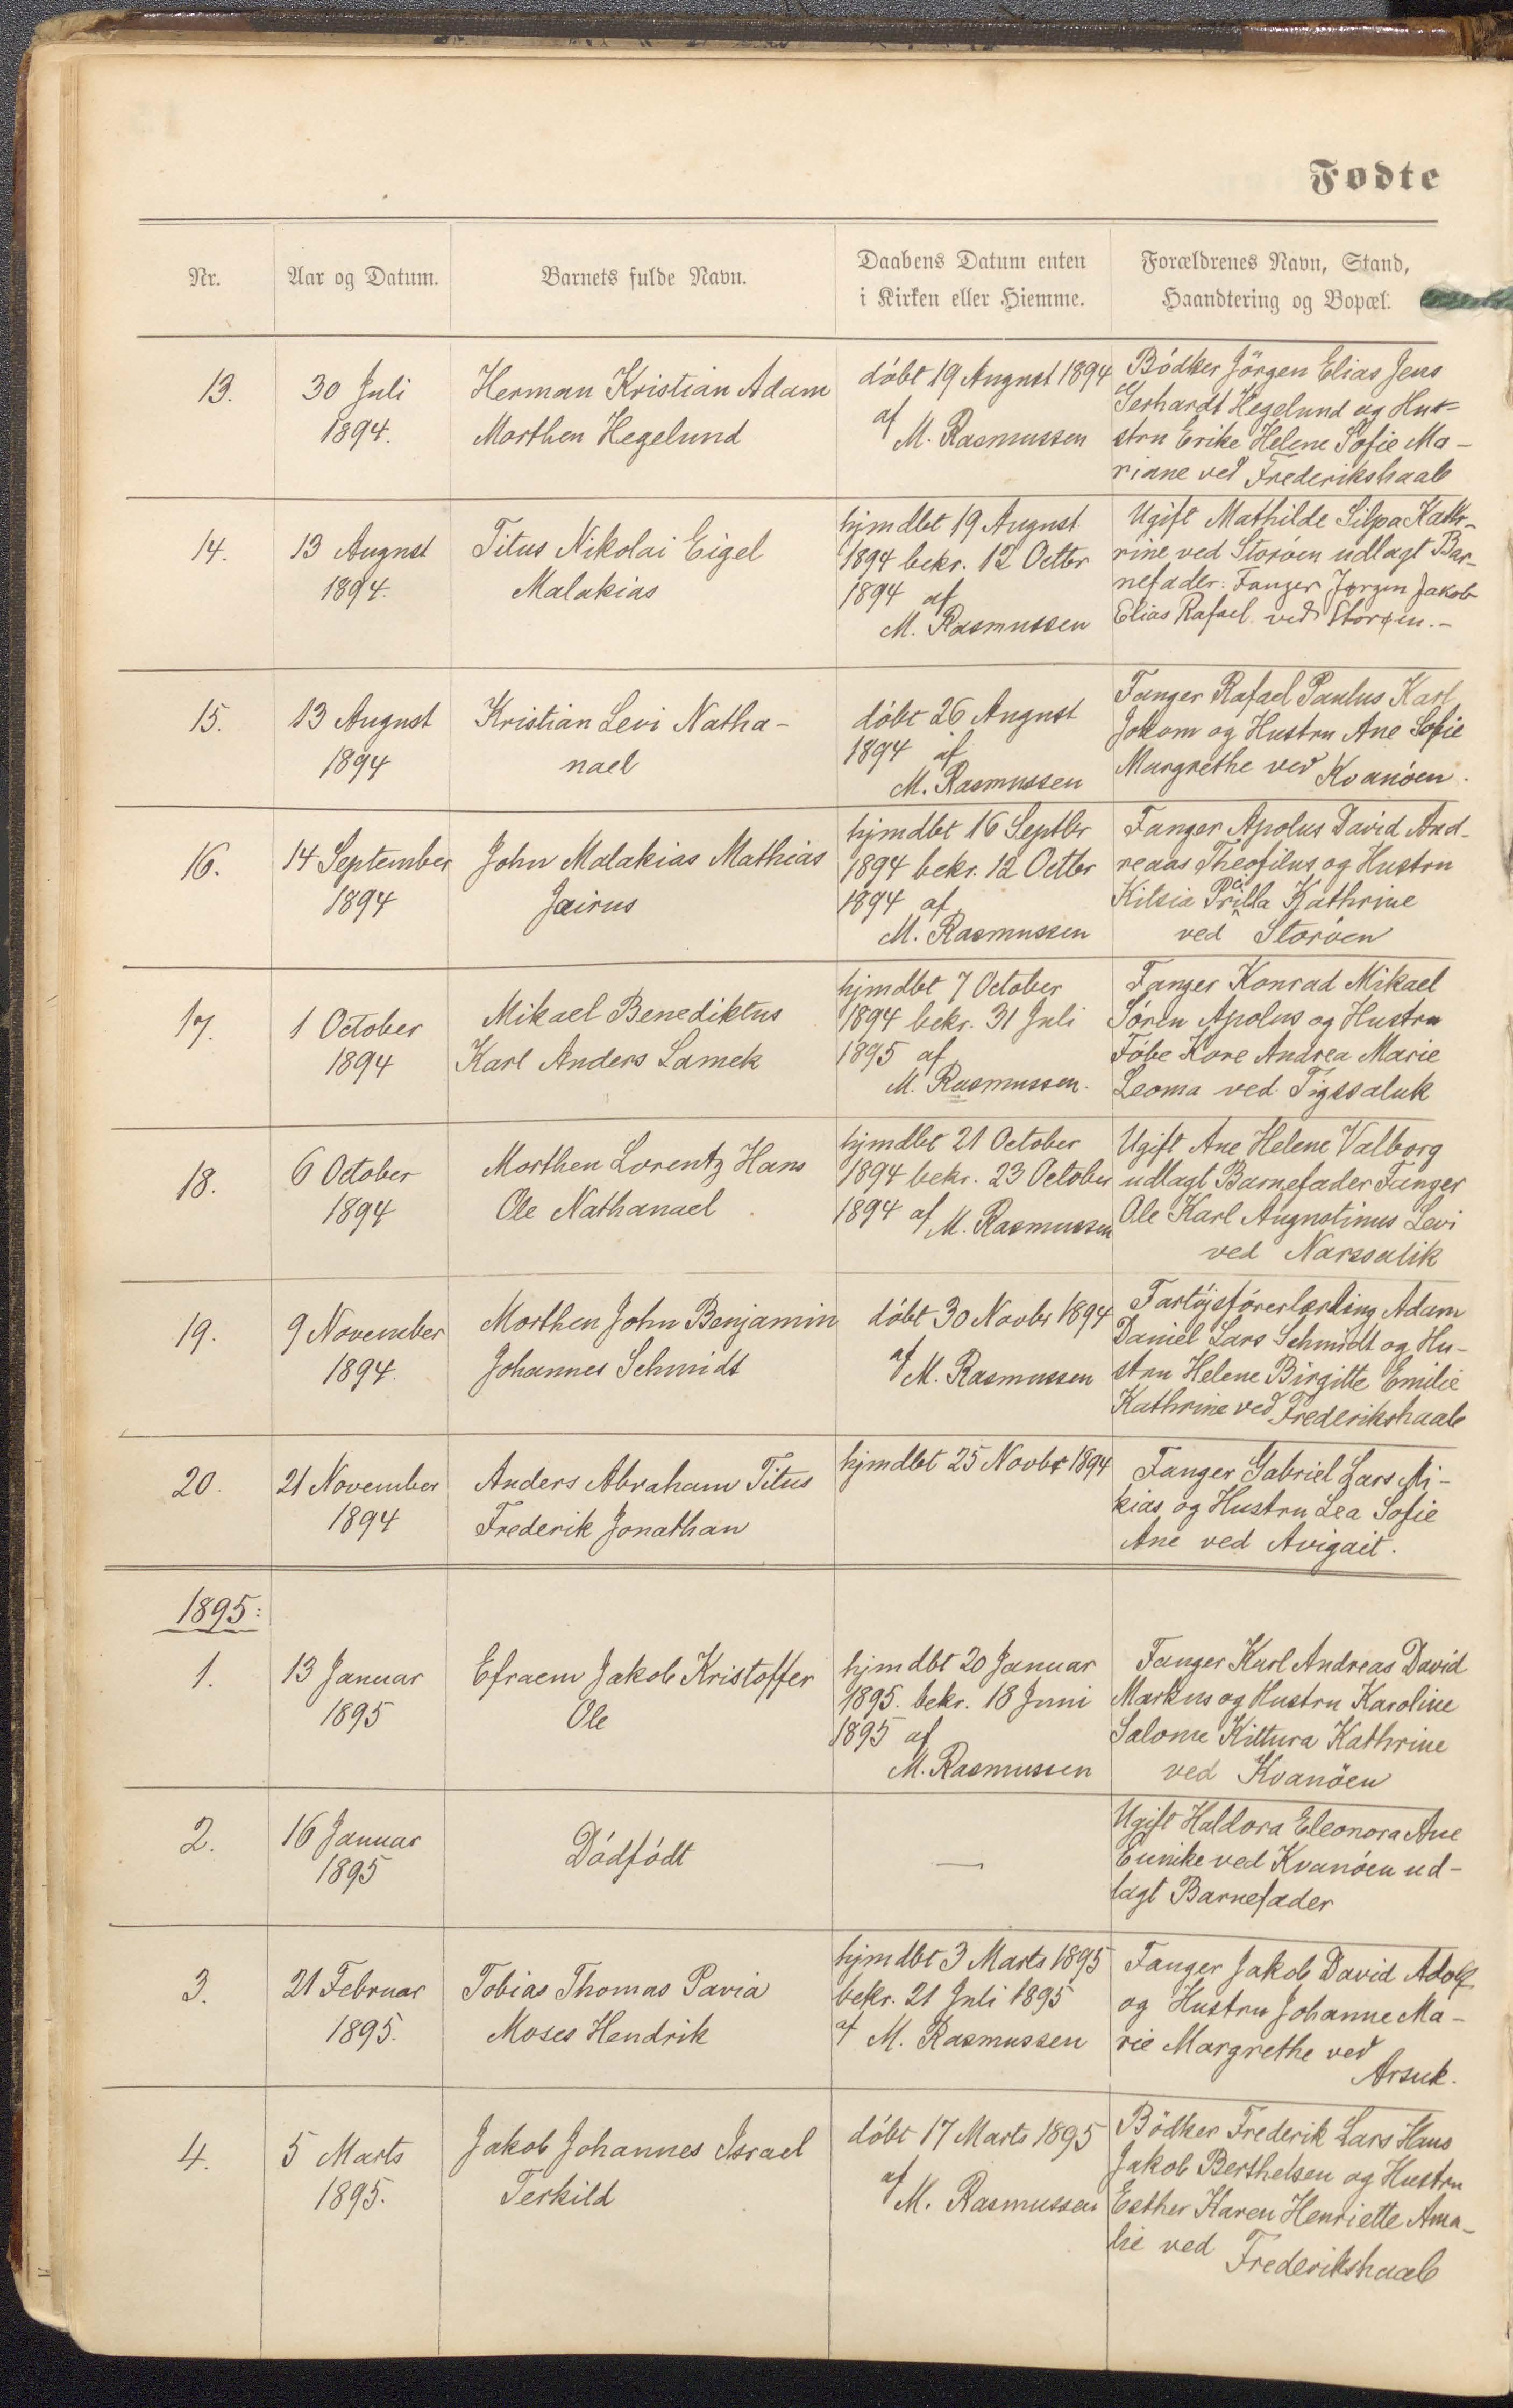 Fødte
Nr.
Aar og Datum.
Barnets fulde Navn.
Daabens Datum enten
i Kirken eller Hiemme.
Forældrenes Navn, Stand,
Haandtering og Bopæl.
13.
30 Juli
1894.
Herman Kristian Adam
Morthen Hegelund
döbt 19 August 1894
af
M. Rasmussen
Bödker Jörgen Elias Jens
Gerhardt Hegelund og Hus-
stru Erike Helene Sofie Ma-
riane ved Frederikshaab
14.
13 August
1894.
Titus Nikolai Eigel
Malakias
hjmdbt 19 August
1894 bekr. 12 Octbr
1894 af
M. Rasmussen
Ugift Mathilde Silpa Kath-
rine ved Storöen udlagt Bar-
nefader: Fanger Jørgen Jakob
Elias Rafael ved Storøen.-
15.
13 August
1894
Kristian Levi Natha-
nael
döbt 26 August
1894 af
M. Rasmussen
Fanger Rafael Paulus Karl
Jokom og Hustru Ane Sofie
Margrethe ved Kvanöen.
16.
14 September
1894
John Malakias Mathias
Jairus
hjmdbt 16 Septbr
1894 bekr. 12 Octbr
1894 af
M. Rasmussen
Fanger Apolus David And-
reaas Theofilus og Hustru
Kilsia Kathrine
ved Storöen
17.
1 October
1894
Mikael Benediktus
Karl Anders Lamek
hjmdbt 7 October
1894 bekr. 31 Juli
1895 af
M. Rasmussen.
Fanger Konrad Mikael
Sören Apolus og Hustru
Föbe Kore Andrea Marie
Leoma ved Tigssaluk
18.
6 October
1894
Morthen Lorentz Hans
Ole Nathanael
hjmdbt 21 October
1894 bekr. 23 October
1894 af M. Rasmussen
Ugift Ane Helene Valborg
udlagt Barnefader Fanger
Ole Karl Augustinus Levi
ved Narssalik
19.
9 November
1894.
Morthen John Benjamin
Johannes Schmidt
döbt 30 Novbr 1894
af M. Rasmussen
Fartöjsförerlærling Adam
Daniel Lars Schmidt og Hu-
stru Helene Birgitte Emilie
Kathrine ved Frederikshaab
20.
21 November
1894
Anders Abraham Titus
Frederik Jonathan
hjmdbt 25 Novbr 1894
Fanger Gabriel Lars Mi-
kias og Hustru Lea Sofie
Ane ved Avigait.
1895:
1.
13 Januar
1895
Efraem Jakob Kristoffer
Ole
hjmdbt 20 Januar
1895. bekr. 18 Juni
1895 af
M. Rasmussen
Fanger Karl Andreas David
Markus og Hustru Karoline
Salome Kittura Kathrine
ved Kvanöen
2.
16 Januar
1895
Dödfödt
—
Ugift Haldora Eleonora Ane
Eunike ved Kvanöen ud-
lagt Barnefader
3.
21 Februar
1895.
Tobias Thomas Pavia
Moses Hendrik
hjmdbt 3 Marts 1895
bekr. 21 Juli 1895
af M. Rasmussen
Fanger Jakob David Adolf
og Hustru Johanne Ma-
rie Margrethe ved
Arsuk.
4.
5 Marts
1895.
Jakob Johannes Israel
Terkild
döbt 17 Marts 1895
af
M. Rasmussen
Bödker Frederik Lars Hans
Jakob Berthelsen og Hustru
Esther Karen Henriette Ama-
lie ved Frederikshaab